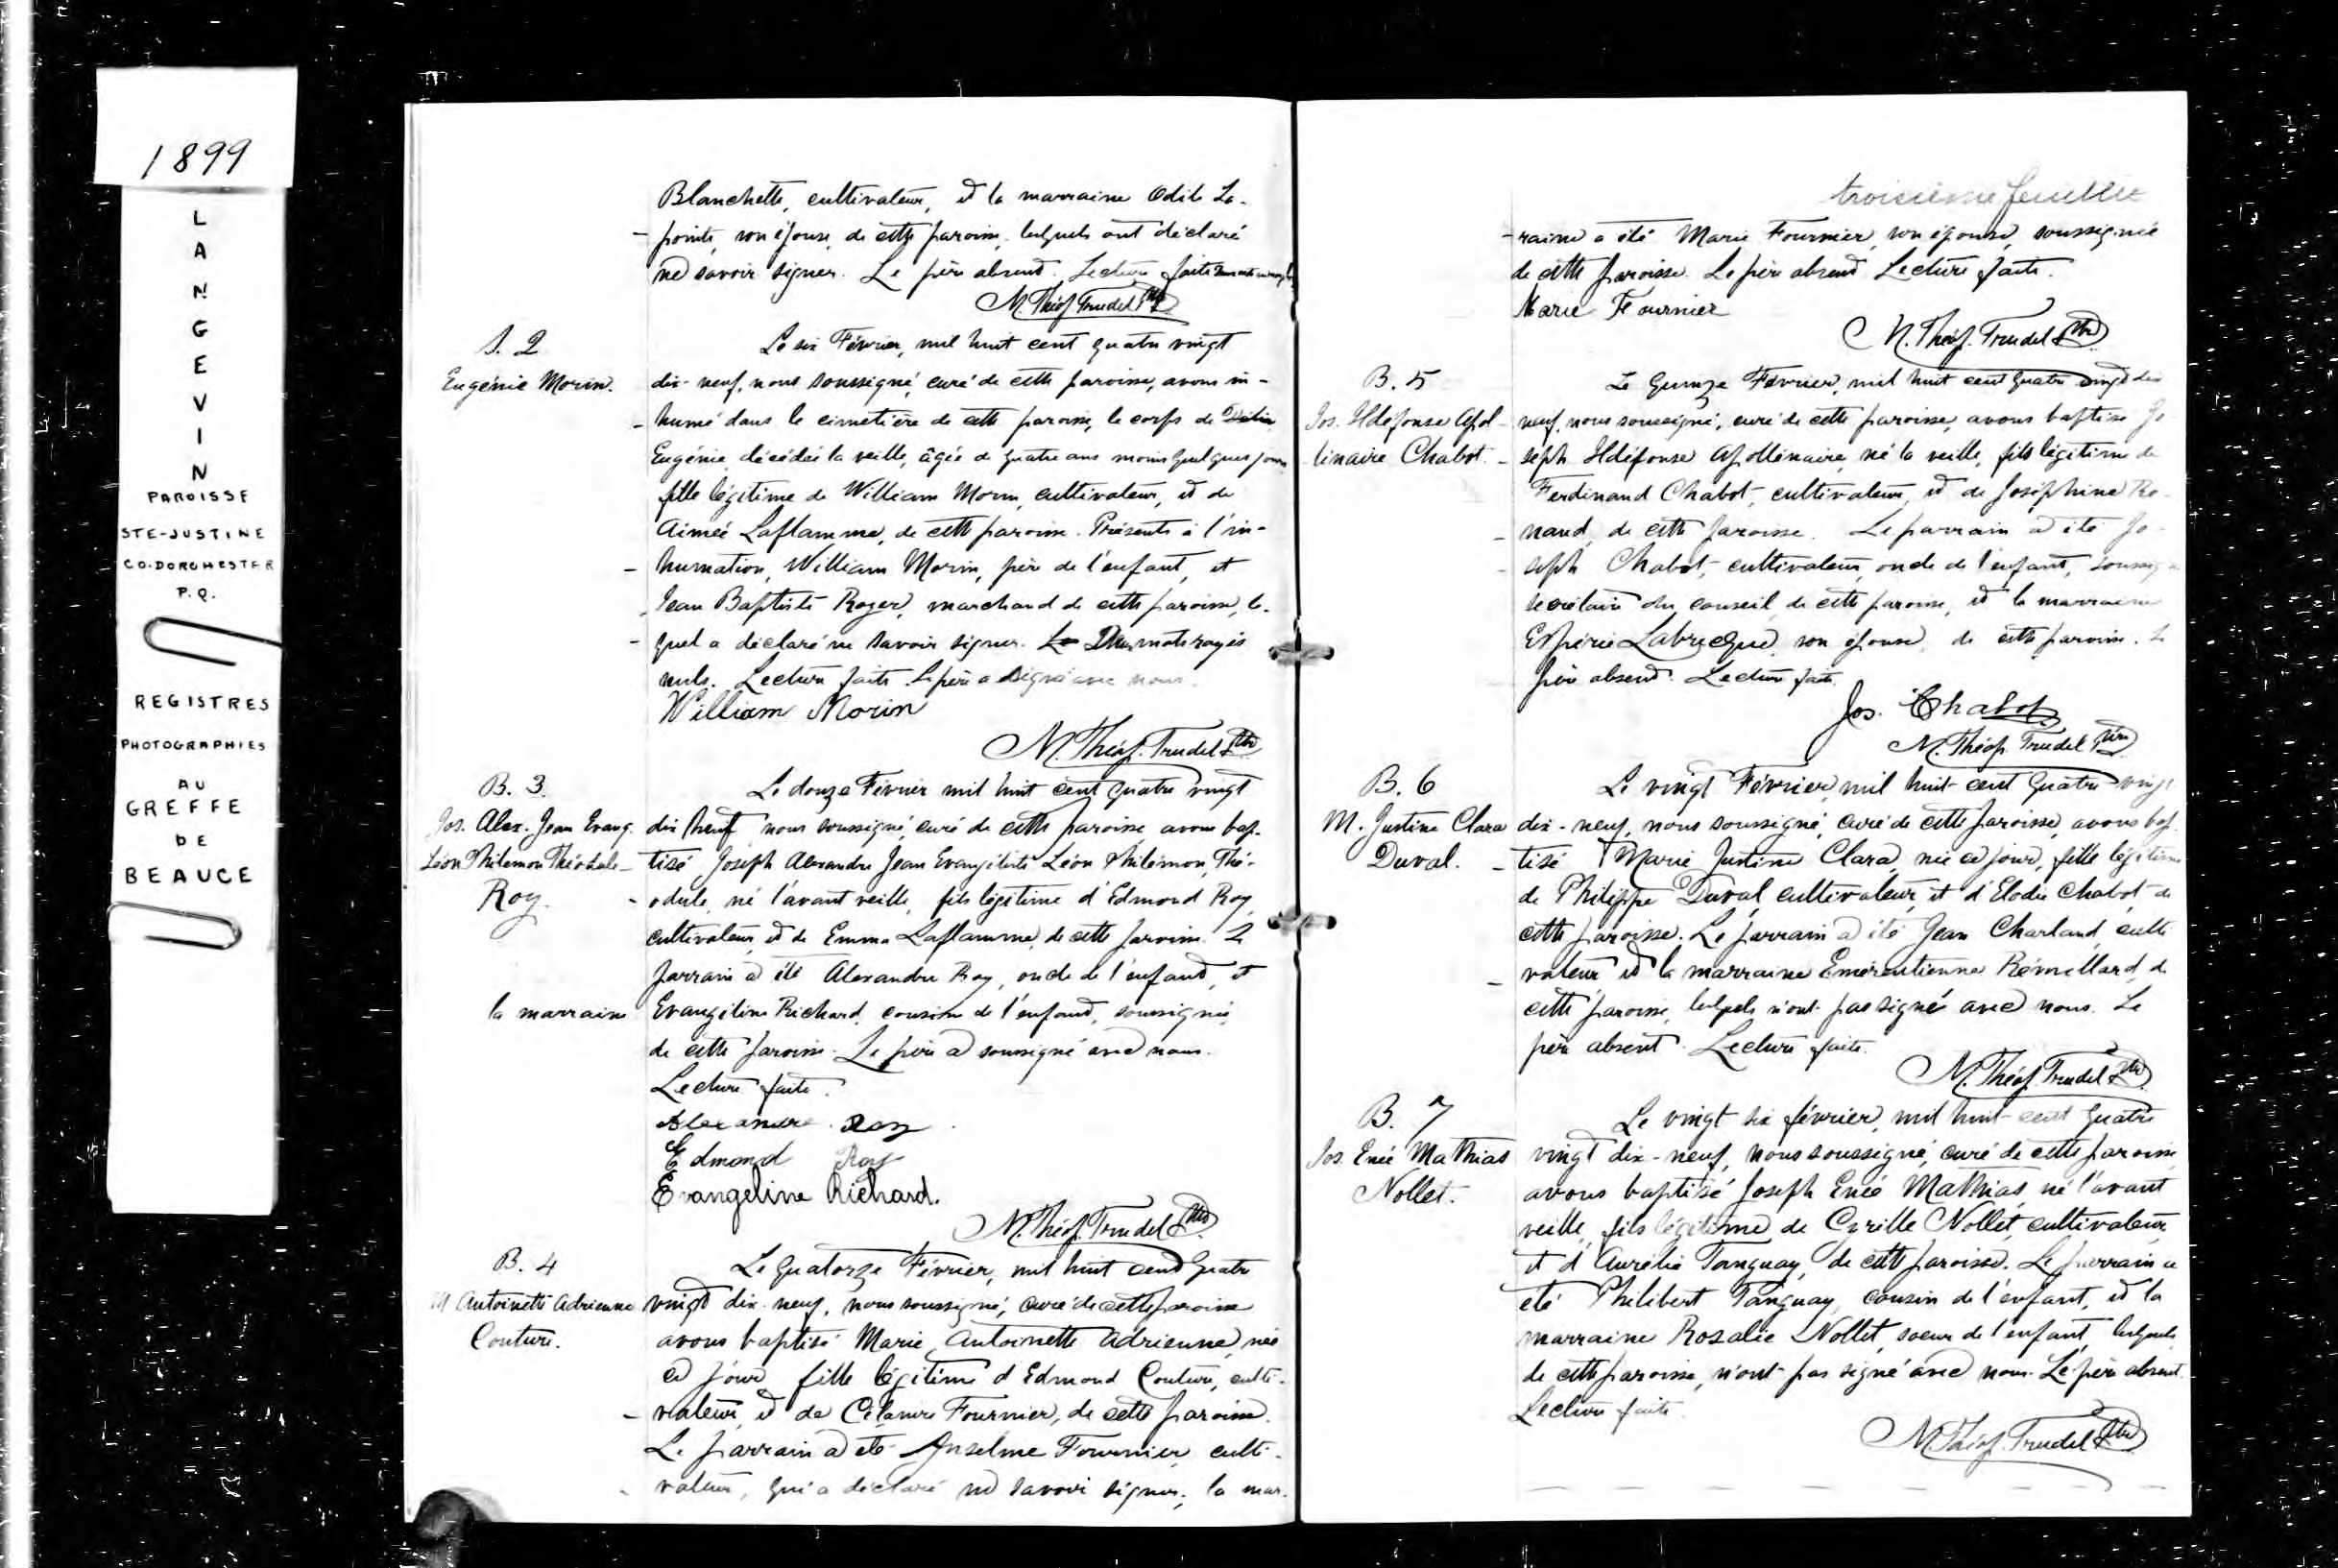 1899
L
A
N
G
E
V
I
N
PAROISSE
STE-JUSTINE
CO. DORCHESTER
P.Q.
REGISTRES
PHOTOGRAPHIES
AU
GREFFE
DE
BEAUCE
Blanchette, cultivateur, et la marraine Odile La-
pointe, son épouse, de cette paroisse, lesquels ont déclaré
ne savoir signer. Le père absent. Lecture faite
M. Théop. Trudel Ptre
S. 2
Eugénie Morin.
Le six Février, mil huit cent quatre vingt
dix-neuf, nous soussigné, curé de cette paroisse, avons in-
humé dans le cimetière de cette paroisse, le corps de
Eugénie, décédée la veille, âgée de quatre ans moins quelques jours
fille légitime de William Morin, cultivateur, et de
Aimée Laflamme, de cette paroisse. Présents à l'in-
humation, William Morin, père de l'enfant, et
Jean Baptiste Roger, marchand de cette paroisse, le-
quel a déclaré ne savoir signer. Le Deux mots rayés
nuls. Lecture faite. Le père a signé avec nous.
William Morin
M. Théop. Trudel Ptre
B. 3.
Jos. Alex. Jean Evang.
Léon Philemon Théodule
Roy.
Le douze Février mil huit cent quatre vingt
dix neuf nous soussigné, curé de cette paroisse avons bap-
tisé Joseph Alexandre Jean Evangéliste Léon Philémon Thé-
odule, né l'avant veille, fils légitime d'Edmond Roy,
cultivateur, et de Emma Laflamme, de cette paroisse. Le
parrain a été Alexandre Roy, oncle de l'enfant, et
la marraine Evangéline Richard, cousine de l'enfant, soussignés,
de cette paroisse. Le père a soussigné avec nous.
Lecture faite.
Alexandre Roy
Edmond Roy
Evangeline Richard.
M. Théop. Trudel Ptre
B. 4
M Antoinette Adrienne
Couture.
Le quatorze Février, mil huit cent quatre
vingt dix-neuf, nous soussigné, curé de cette paroisse
avons baptisé Marie Antoinette Adrienne, née
ce jour, fille légitime d'Edmond Couture, culti-
vateur, et de Célanire Fournier, de cette paroisse.
Le parrain a été Anselme Fournier, culti-
vateur, qui a déclaré ne savoir signer, la mar-
troisième feuillet
-raine a été Marie Fournier, son épouse, soussignée
de cette paroisse. Le père absent. Lecture faite.
Marie Fournier
M. Théop. Trudel Ptre
B. 5
Jos. Ildefonse Apol-
linaire Chabot.
Le Quinze Février, mil huit cent quatre vingt dix
neuf, nous soussigné, curé de cette paroisse, avons baptisé Jo
seph Ildéfonse Apollinaire, né la veille, fils légitime de
Ferdinand Chabot, cultivateur, et de Joséphine Re-
naud, de cette paroisse. Le parrain a été Jo-
seph Chabot, cultivateur, oncle de l'enfant, soussigné
secrétaire du conseil de cette paroisse, et la marraine
Labrecque, son épouse, de cette paroisse. Le
père absent. Lecture faite.
Jos. Chabot
M. Théop. Trudel Ptre
B. 6
M. Justine Clara
Duval.
Le vingt Février, mil huit cent quatre vingt
dix-neuf, nous soussigné, curé de cette paroisse, avons bap-
tisé Marie Justine Clara, née ce jour, fille légitime
de Philippe Duval, cultivateur, et d'Elodie Chabot, de
cette paroisse. Le parrain a été Jean Charland, culti
vateur et la marraine Emérentienne Rémillard, de
cette paroisse, lesquels n'ont pas signé avec nous. Le
père absent. Lecture faite.
M. Théop. Trudel Ptre
B. 7
Jos. Enée Mathias
Nollet.
Le vingt six février, mil huit cent quatre
vingt dix-neuf, nous soussigné, curé de cette paroisse,
avons baptisé Joseph Enée Mathias, né l'avant
veille, fils légitime de Cyrille Nollet, cultivateur,
et d'Aurélie Tanguay, de cette paroisse. Le parrain a
été Philibert Tanguay, cousin de l'enfant, et la
marraine Rosalie Nollet, soeur de l'enfant, lesquels,
de cette paroisse, n'ont pas signé avec nous. Le père absent.
Lecture faite.
M. Théop. Trudel Ptre